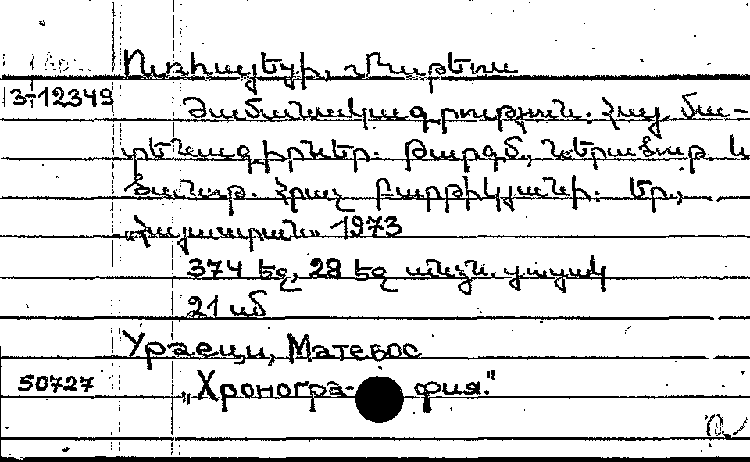 Ուռհայեցի, Մաթեոս
3-12349
Ժամանակագրություն. Հայ մա-
տենագիրներ. Թարգմ., ներածութ. և
ծանոթ. Հրաչ Բարթիկյանի. Եր.,
„Հայաստան" 1973
374 եջ, 28 եջ անկ. յասակ
21 սմ
Ураеци, Матевос
50727
„Хроногра- фия."